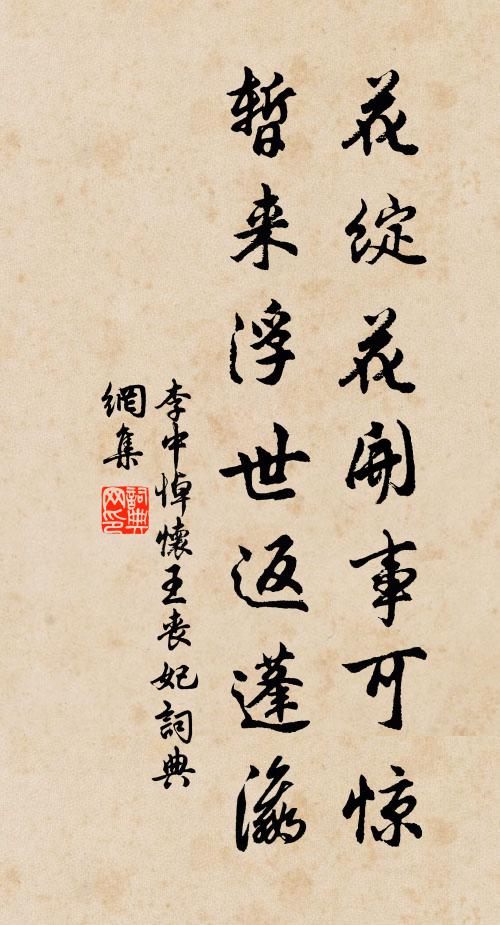 花绽花開事可惊
暫来浮世返蓬瀛
李中悼懷王喪妃詞典
網集
詞典
网印